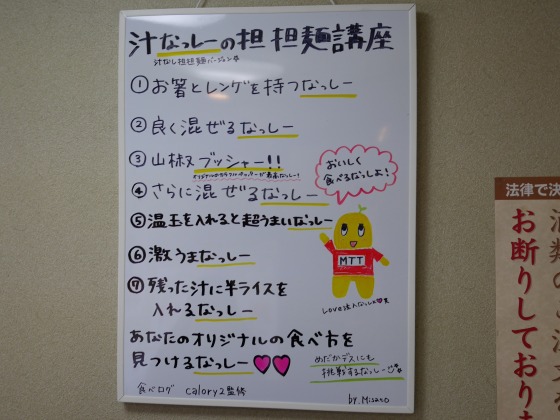 汁なっしーの担担麺講座
汁なし担担麺バージョン
① お箸とレンゲを持つなっしー
② 良く混ぜるなっしー
③ 山椒ブッシャー!!
④ さらに混ぜるなっしー
⑤ 温玉を入れると超うまいなっしー
⑥ 激うまなっしー
⑦ 残った汁に半ライスを
入れるなっしー
あなたのオリジナルの食べ方を
見つけるなっしー♥♥
食べログ calory2監修
おいしく
食べるなっしよ!
MTT
めだかデスにも
挑戦するなっしー
by.Misako
法律で決
お断りしており